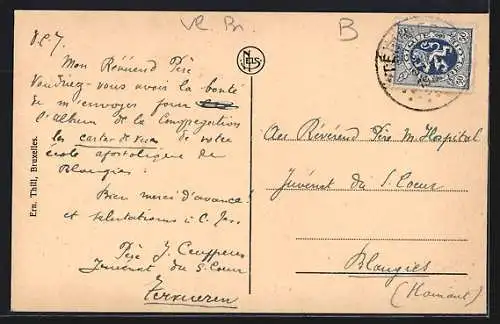 Vl. Br.
B
Mon Révérend Père
Voudriez-vous avoir la bonté
de m'envoyer pour
l'Album de la Congrégation
les cartes de vues de votre
école apostolique de
Blougies.
Bien merci d'avance
et salutations
Père J.
Juvénat du S. Coeur
Tervueren
NELS
Ern. Thill, Bruxelles.
Au Révérend Père M. Hospital
Juvénat du S. Coeur
Blougies
(Hainaut)